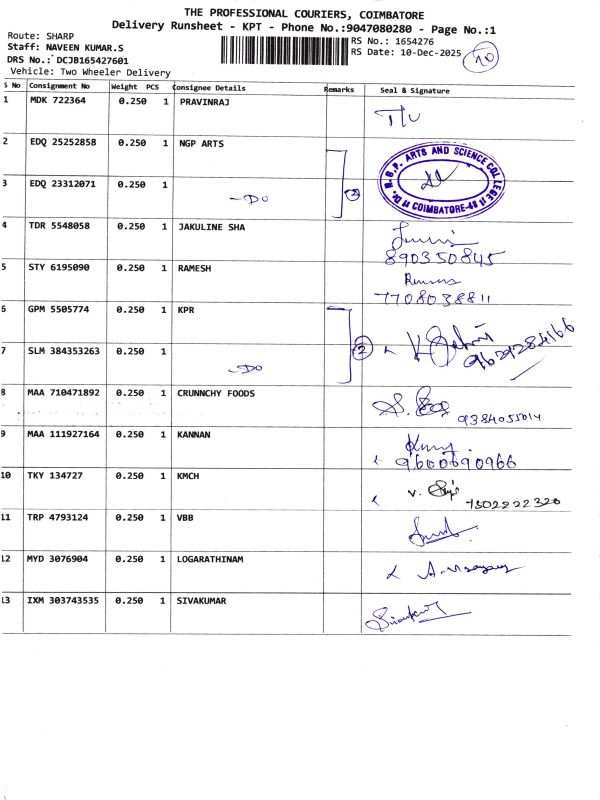 THE PROFESSIONAL COURIERS, COIMBATORE
Delivery Runsheet - KPT - Phone No.:9047080280 - Page No.:1
Route: SHARP
Staff: NAVEEN KUMAR.S
DRS No.: DCJB165427601
Vehicle: Two Wheeler Delivery
RS No.: 1654276
RS Date: 10-Dec-2025
S No Consignment No Weight PCS Consignee Details Remarks Seal & Signature
1 MDK 722364 0.250 1 PRAVINRAJ
2 EDQ 25252858 0.250 1 NGP ARTS
Dr. N.G.P. ARTS AND SCIENCE COLLEGE COIMBATORE-48
3 EDQ 23312071 0.250 1 -DO 2
4 TDR 5548058 0.250 1 JAKULINE SHA
890350845
5 STY 6195090 0.250 1 RAMESH
7708038811
6 GPM 5505774 0.250 1 KPR
9629284166
7 SLM 384353263 0.250 1 -DO 2
8 MAA 710471892 0.250 1 CRUNNCHY FOODS
9384055014
9 MAA 111927164 0.250 1 KANNAN
9600690966
10 TKY 134727 0.250 1 KMCH
7502222320
11 TRP 4793124 0.250 1 VBB
12 MYD 3076904 0.250 1 LOGARATHINAM
13 IXM 303743535 0.250 1 SIVAKUMAR